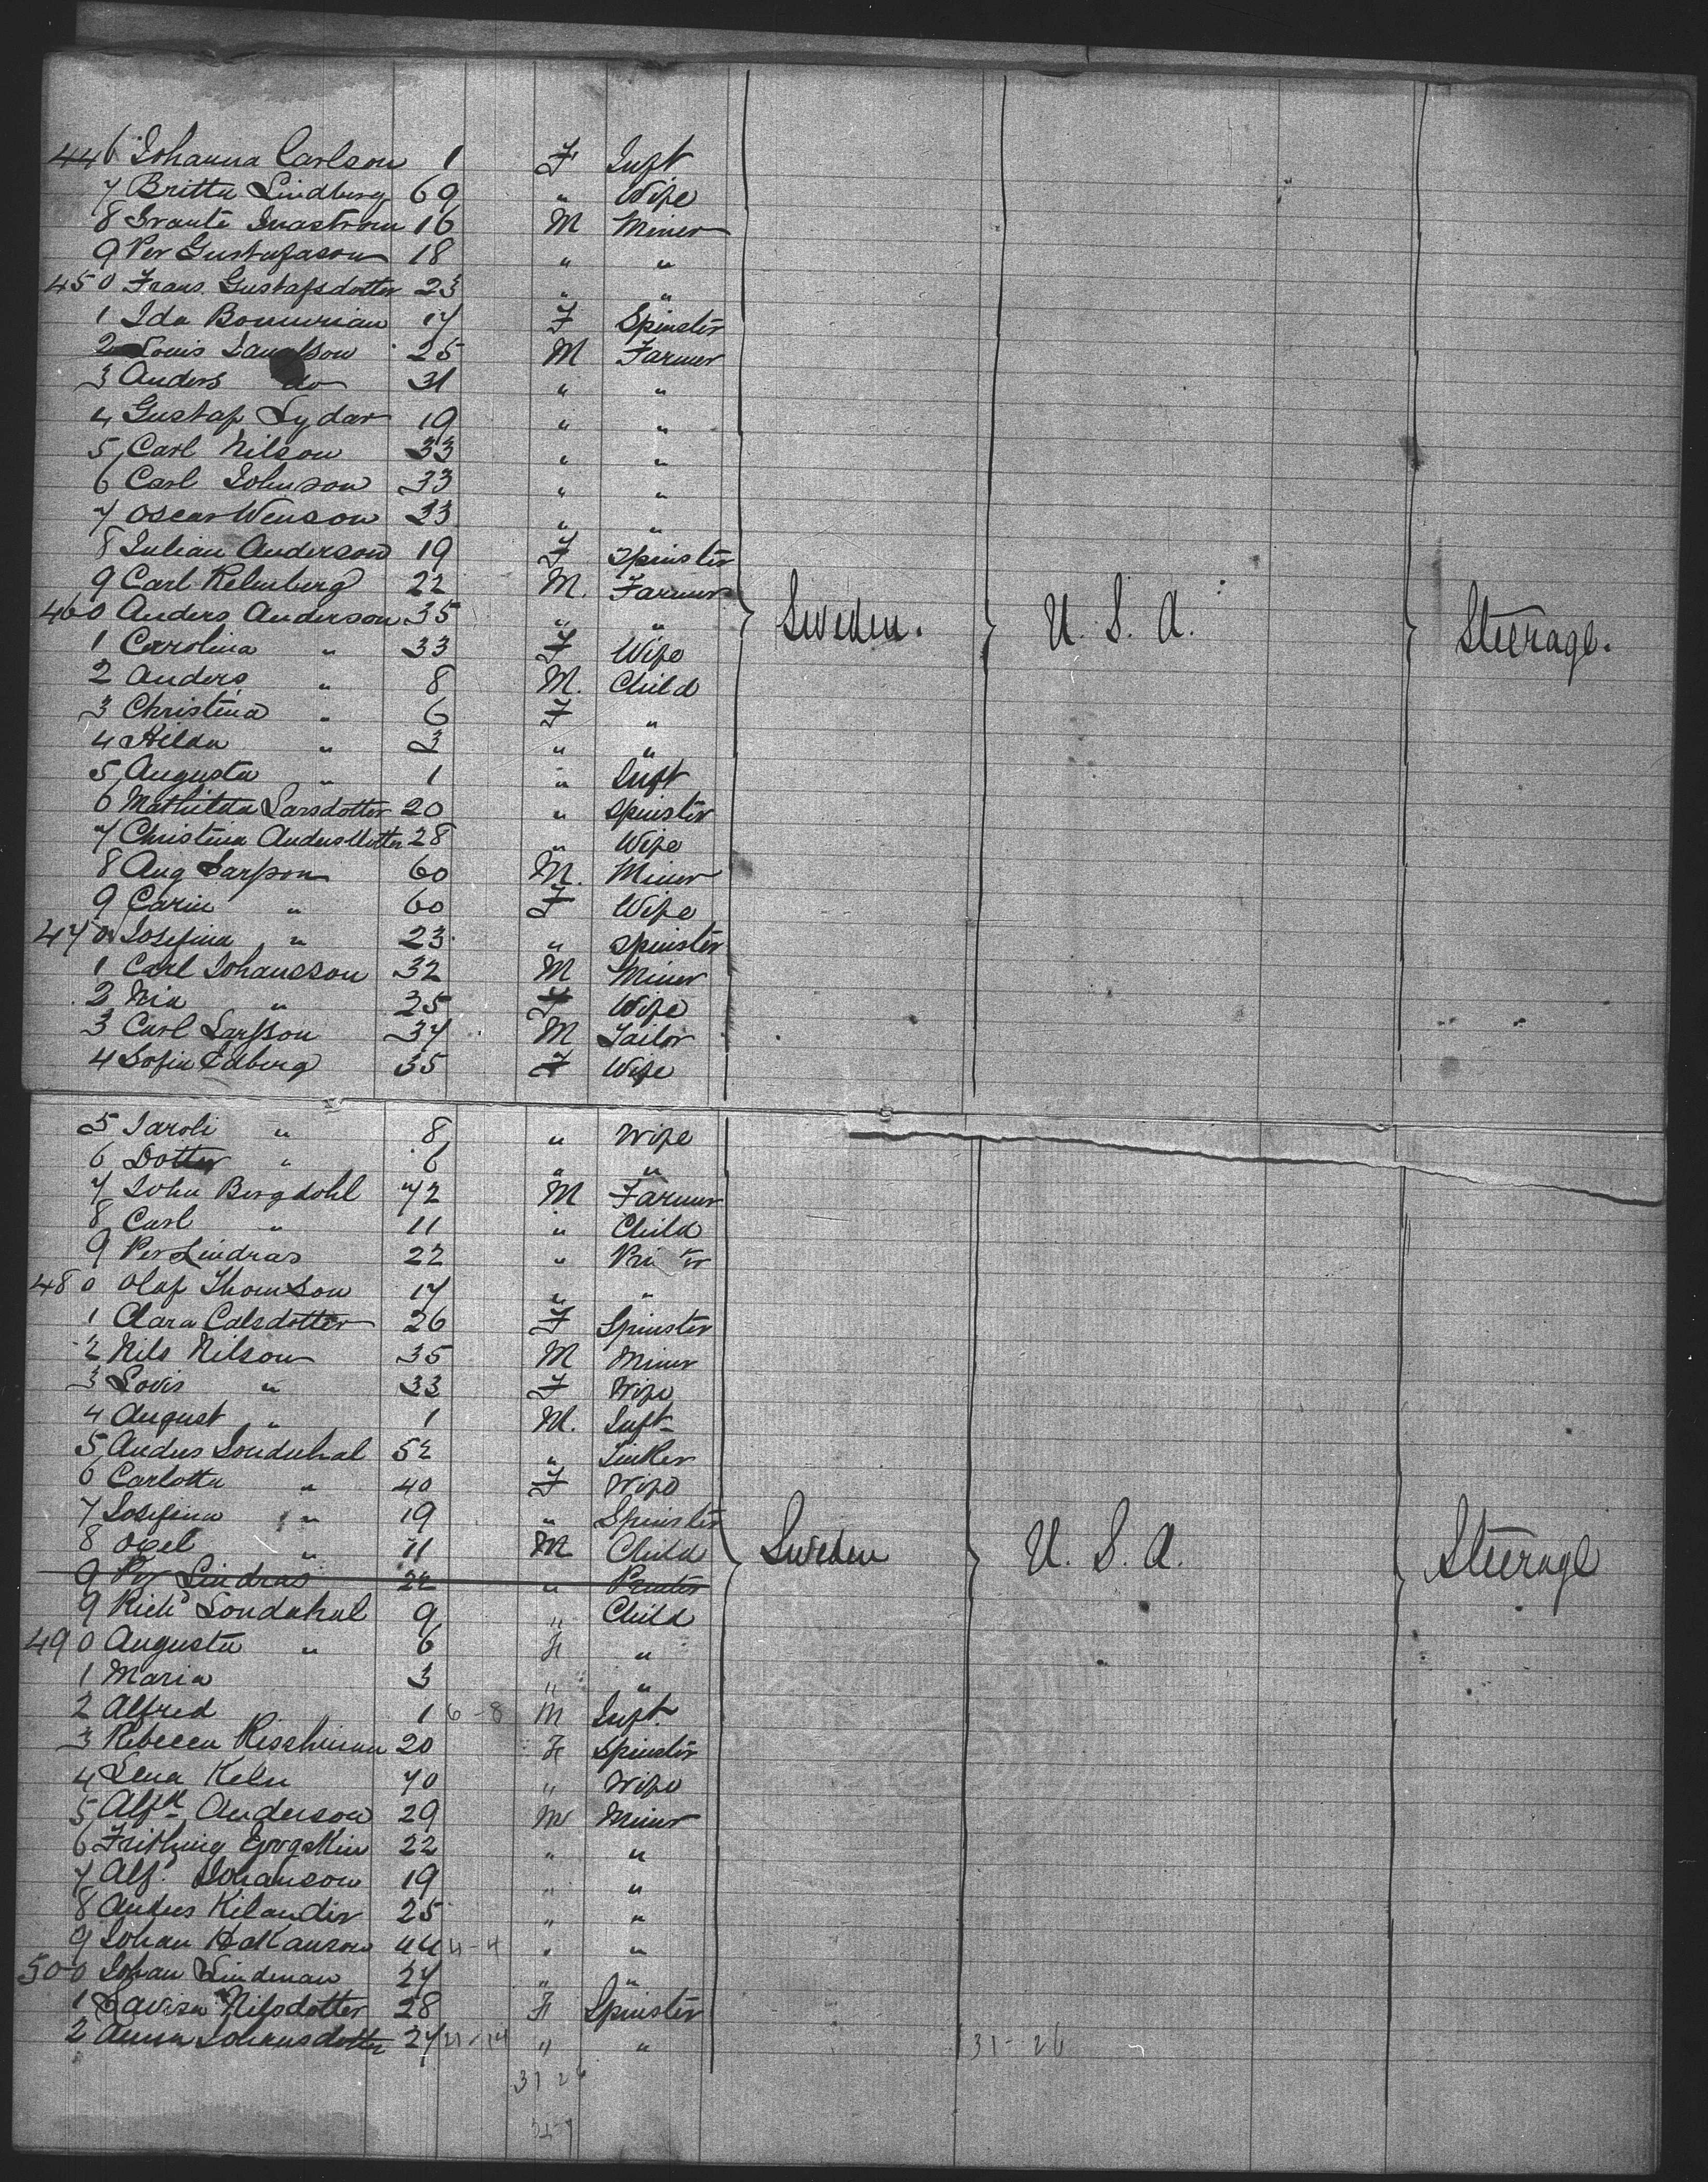 446 Johanna Carlson 1 F Inft
7 Britta Lindberg 69 " Wife
8 16 M Miner
9 Per Gustafason 18 " "
450 Frans Gustafsdotter 23 " "
1 Ida 17 F Spinster
2 Louis 25 M Farmer
3 Anders do 31 " "
4 Gustaf Lydar 19 " "
5 Carl Nilson 33 " "
6 Carl Johnson 33 " "
7 Oscar Wenson 23 " "
8 Julian Anderson 19 F Spinster
9 Carl Relmberg 22 M. Farmer
460 Anders Anderson 35 " " Sweden. U. S. A. Steerage.
1 Carolina " 33 F Wife
2 Anders " 8 M. Child
3 Christina " 6 F "
4 Hilda " 3 " "
5 Augusta " 1 " Inft
6 Mathilda Larsdotter 20 " Spinster
7 Christina Andersdotter 28 " Wife
8 Aug Larsson 60 M. Miner
9 Carin " 60 F Wife
470 Josefina " 23 " Spinster
1 Carl Johansson 32 M Miner
2 Mia " 25 F Wife
3 Carl Larsson 37 M Tailor
4 Sofia Edberg 35 F Wife
5 " 8 " Wife
6 Dotter " 6 " "
7 John Bergdohl 72 M Farmer
8 Carl " 11 " Child
9 Per Lindras 22 " Printer
480 Olof Thomson 17 " "
1 Clara Calsdotter 26 F Spinster
2 Nils Nilson 35 M Miner
3 Lovis " 33 F Wife
4 August " 1 M. Inft
5 Anders Londahal 52 " Tinker
6 Carlotta " 40 F Wife
7 Josefina " 19 " Spinster
8 Oxel " 11 M Child Sweden U. S. A. Steerage
9 Per Lindras 22 " Printer
9 Richd Londahal 9 " Child
490 Augusta " 6 F "
1 Maria 3 " "
2 Alfred 1 6-8 M Inft.
3 Rebecca Rischman 20 F Spinster
4 Lena Keln 70 " Wife
5 Alfd Anderson 29 M Miner
6 22 " "
7 Alfd. Johanson 19 " "
8 Anders Kilander 25 " "
9 Johan Hakanson 44 " "
500 Johan Lindman 27 " "
1 Lavisa Nilsdotter 28 F Spinster
2 Anna Johansdotter 27 " " 31-26
31 26